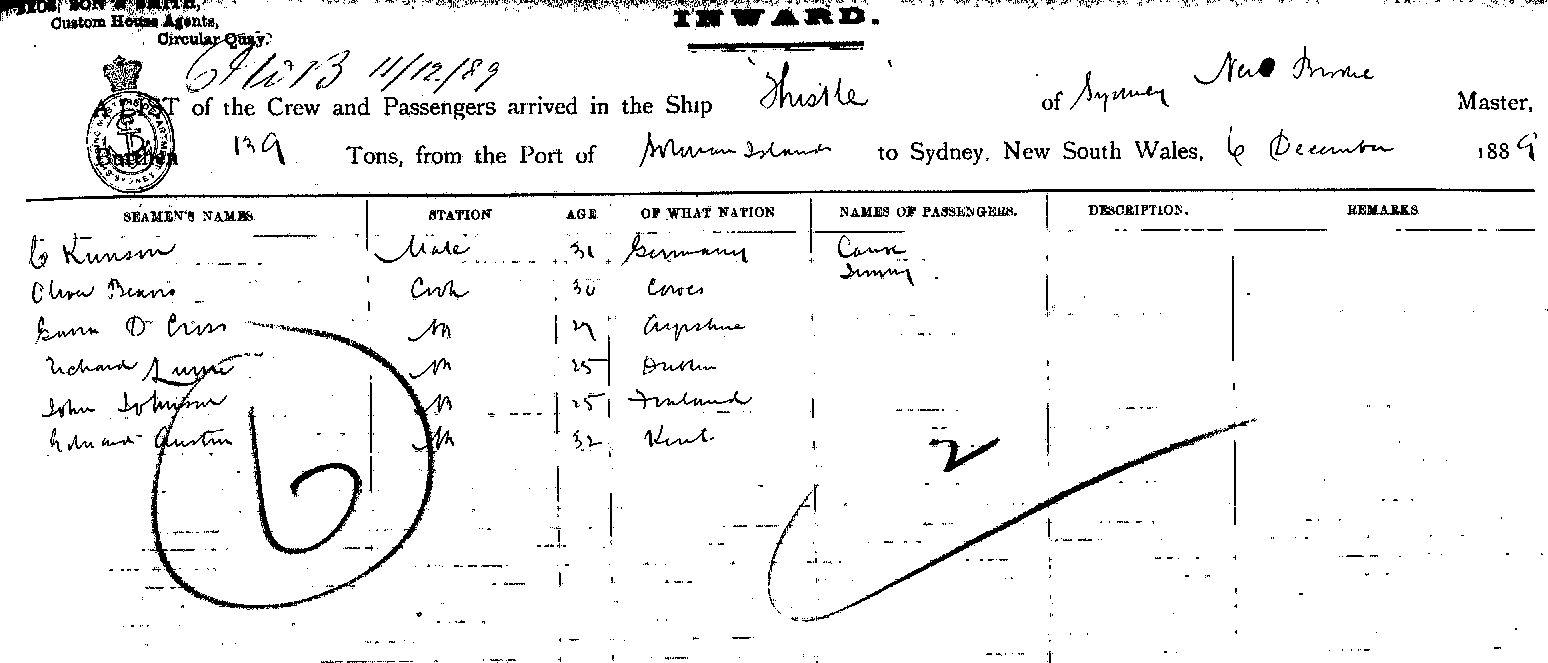 SON & SMITH,
Custom House Agents,
Circular Quay.
INWARD.
11/12/89
A LIST of the Crew and Passengers arrived in the Ship 'Thistle' of Sydney Master,
Burthen 139 Tons, from the Port of Solomon Islands to Sydney, New South Wales, 6 December 1889
SEAMEN'S NAMES STATION AGE OF WHAT NATION NAMES OF PASSENGERS. DESCRIPTION. REMARKS
Mate 31 Germany
Oliver Beavis Cook 30 Cowes
D Cross AB
Jimmy
Richard AB 25 Dublin
John Johnson AB 25 Finland
Edward Austin AB 32 Kent
6
2